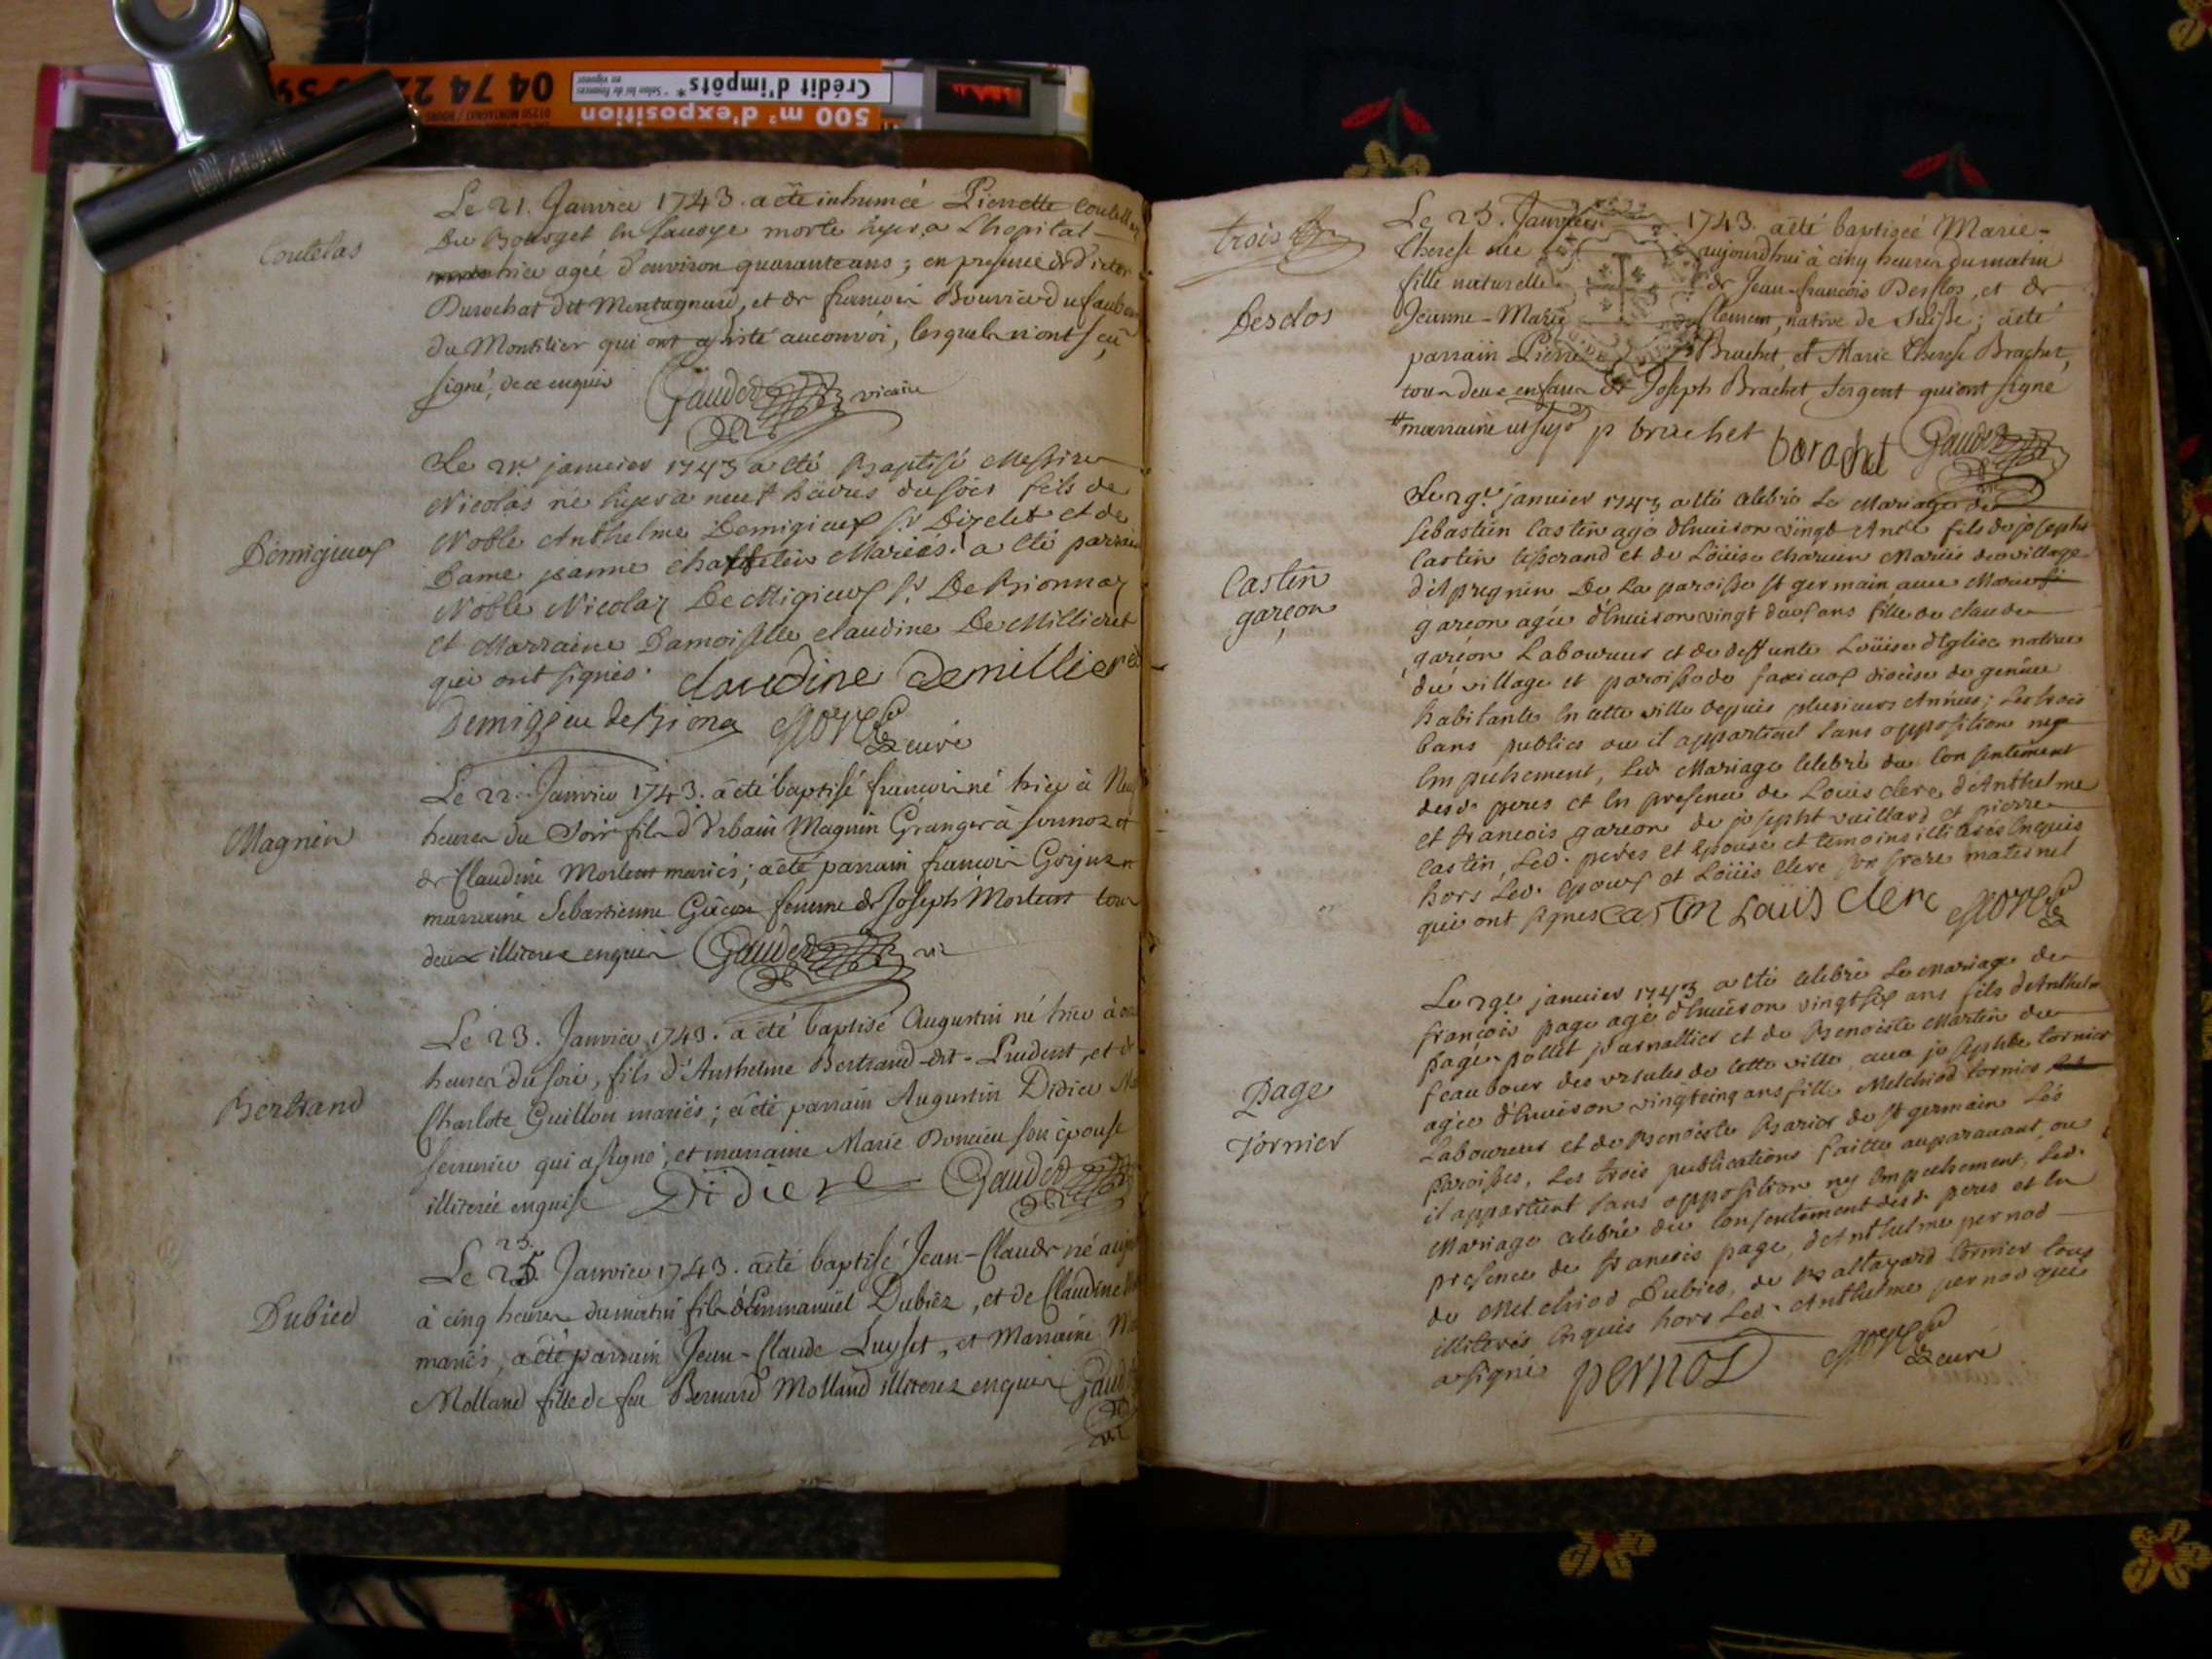 04 74 22 59
01250 MONTAGNAT / BOURG
Crédit d'impôts*
* Selon loi de finances
en vigueur
500 m² d'exposition
Coutelas
Le 21. Janvier 1743. a été inhumée Pierrette
Du Bourget en Savoye morte hyer a L'hopital
hier agée d'environ quarante ans; en presence de
Durochat dit Montagnard, et de françois Bouvier du faub
du Montilier qui ont assisté au convoi, lesquels n'ont sçu
signé, de ce enquis Gauder vicaire
Demigieux
Le 21e janvier 1743 a été Baptisé Messire
Nicolas né hyer a neuf heures du soir fils de
Noble Anthelme Demigieux Sr Dizelet et de
Dame jeanne chastelin Mariés. a été parrain
Noble Nicolas De Migieux Sr De Brionnaz
et Marraine Damoiselle claudine De Millieret
qui ont signés. claudine Demillieret
Demigieu de Briona curé
Magnin
Le 22. Janvier 1743. a été baptisé françois né hier à Neuf
heures du Soir fils d'Urbain Magnin Granger à
de Claudine mariés; a été parrain françois
marraine Sebastienne femme de Joseph tous
deux illiterés enquis Gauder
Bertrand
Le 23. Janvier 1743. a été baptisé Augustin né hier à
heures du soir, fils d'Anthelme Bertrand-dit-Prudent, et de
Charlote Guillon mariés; a été parrain Augustin Didier
serrurier qui a signé, et marraine Marie Doncieu son épouse
illiterée enquise Didier Gauder
Dubied
25.
Le 25. Janvier 1743. a été baptisé Jean-Claude né
à cinq heures du matin fils d'Emmanuël Dubiez, et de Claudine
mariés, a été parrain Jean-Claude Luyset, et Marraine
Molland fille de feu Bernard Molland illiterez enquis
trois
Desclos
Le 25. Janvier 1743. a été baptisée Marie-
Therese née aujourdhui à cinq heures du matin
fille naturelle de Jean-francois Desclos, et de
Jeanne-Marie native de Suisse; a été
parrain Pierre Brachet, et Marie Therese Brachet,
tous deux enfans de Joseph Brachet Sergent qui ont signé
marraine p brachet borachet Gauder
Castin
garçon
Le 29e janvier 1743 a été celebré Le Mariage de
Sebastien Castin agé d'Environ vingt Ans fils de joseph
Castin tisserand et de Loüise charvin Mariés du village
d'Apregnin De La paroisse st germain avec Marie
garçon agée d'Environ vingt deux ans fille de claude
garçon Laboureur et de deffunte Loüise d'Eglise native
du village et paroisse de diocèse de genève
habitante En cette ville depuis plusieurs Années; Les trois
bans publiés ou il appartient sans opposition ny
Empechement, Led. Mariage Celebré du Consentement
desd. peres et En presence de Louis clerc d'Anthelme
et francois garçon de joseph vuillard et pierre
Castin, Led. peres et Epouse et temoins illiterés Enquis
hors Led. Epoux et Loüis clerc son frere maternel
qui ont signés castin Louis clerc
Page
Tornier
Le 29e janvier 1743 a été Celebré Le Mariage de
françois page agé d'Environ vingt six ans fils d'Anthelme
page-pollet journallier et de Benoiste Martin du
feaubour des ursules de cette ville, avec josephte tornier
agée d'Environ vingt cinq ans fille Melchiod tornier
Laboureur et de Benoiste Barior de st germain Les
Paroisses, Les trois publications faittes auparavant ou
il appartient sans opposition ny Empechement, Led.
Mariage celebré du Consentement desd. peres et En
presence de francois page, d'Anthelme pernod
de Melchiod Dubied, de Baltazard tornier tous
illiterés Enquis hors Led. Anthelme pernod qui
a signé pernod curé